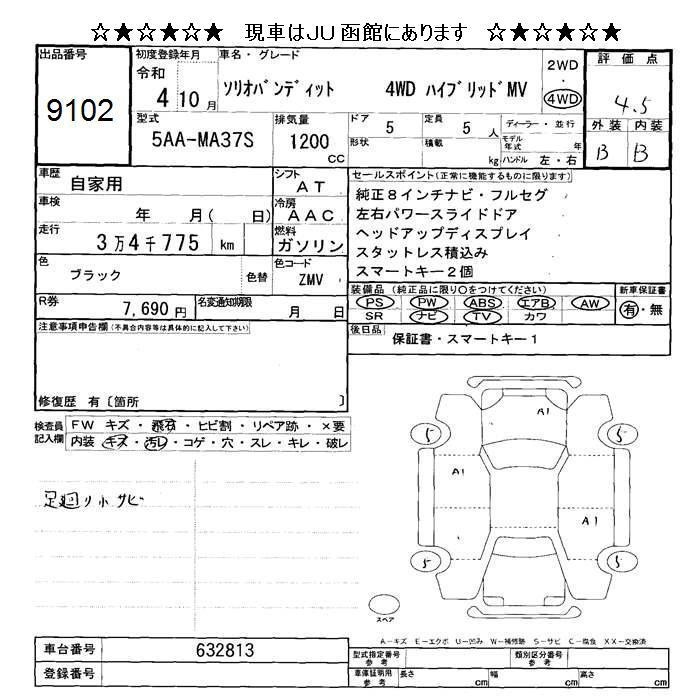 ☆★☆★☆★ 現車はJU函館にあります ☆★☆★☆★
出品番号 9102
初度登録年月 令和 4 10 月
車名・グレード ソリオバンディット 4WD ハイブリッドMV
2WD ・ 4WD
評価点 4.5
外装 内装
B B
型式 5AA-MA37S
排気量 1200 CC
ドア 5 定員 5 人
形状 積載 kg
ディーラー・並行
モデル年式 年
ハンドル 左・右
車歴 自家用
シフト AT
車検 年 月( 日)
冷房 AAC
走行 3万4千775 km
燃料 ガソリン
色 ブラック 色替
色コード ZMV
R券 7,690円
名変通知期限 月 日
セールスポイント(正常に機能するものに限ります)
純正8インチナビ・フルセグ
左右パワースライドドア
ヘッドアップディスプレイ
スタットレス積込み
スマートキー2個
装備品(純正品に限り○をつけてください)
PS PW ABS エアB AW
SR ナビ TV カワ
新車保証書
有・無
後日品 保証書・スマートキー1
注意事項申告欄(不具合内容等は具体的に記入して下さい)
修復歴 有〔箇所 〕
検査員記入欄
FW キズ・飛石・ヒビ割・リペア跡・×要
内装 キズ・汚レ・コゲ・穴・スレ・キレ・破レ
足廻り小サビ
A1
5 5
A1
A1
5 5
スペア
A-キズ E-エクボ U-凹み W-補修跡 S-サビ C-腐食 XX-交換済
車台番号 632813
登録番号
型式指定番号 参考
類別区分番号 参考
車庫証明用 参考 長さ cm 幅 cm 高さ cm